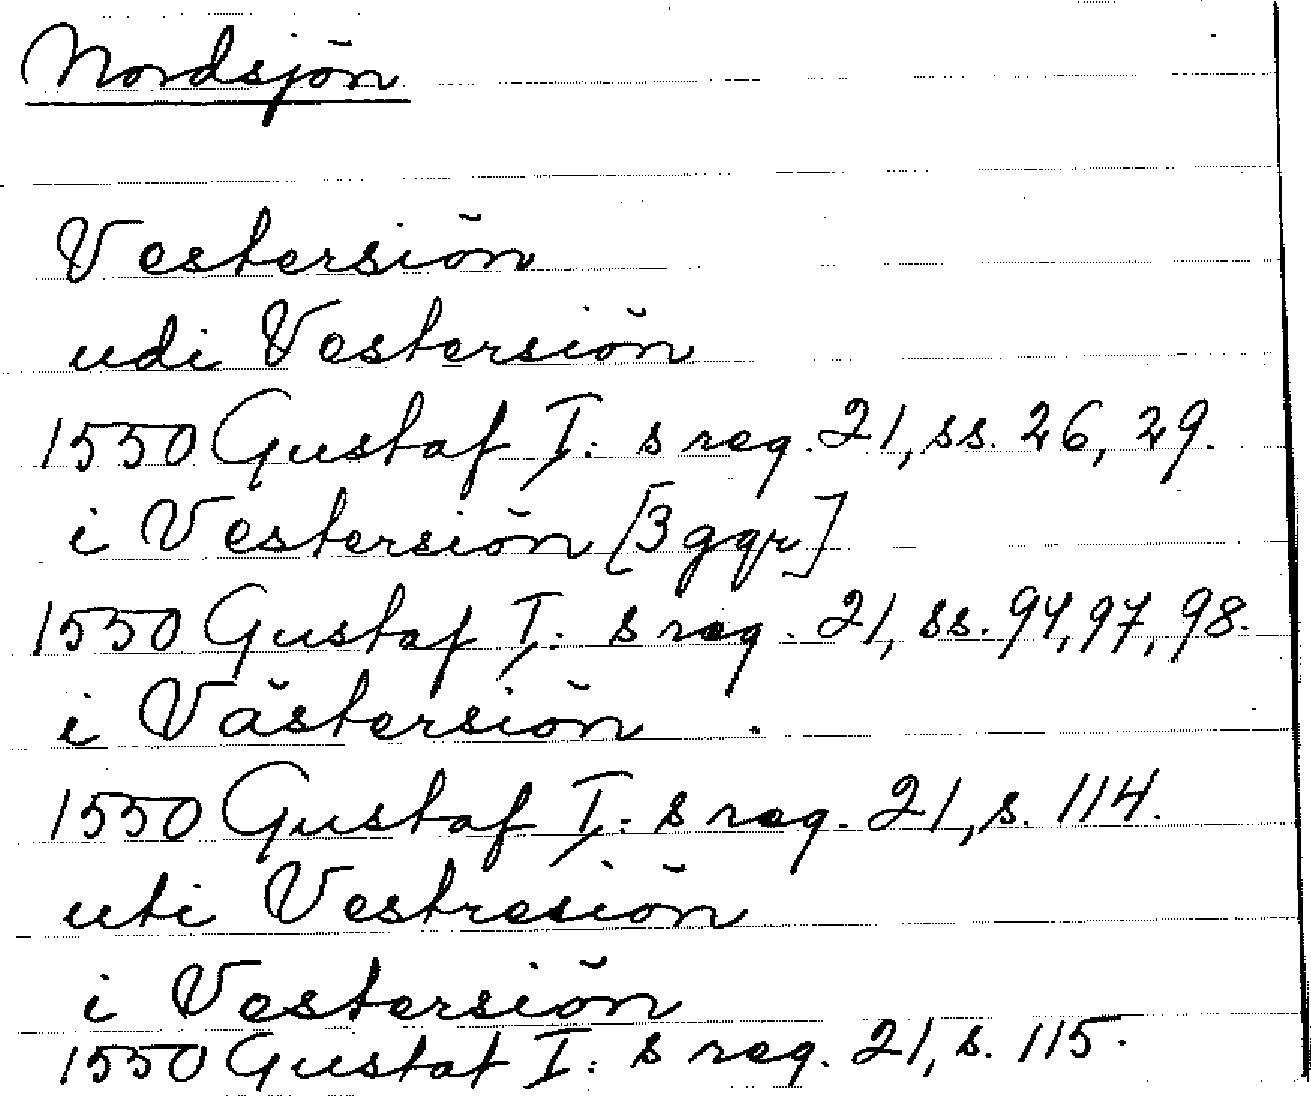 Nordsjön
Vestersiön
udi Vestersiön
1550 Gustaf I: s reg. 21, ss. 26, 29.
i Vestersiön [3 ggr]
1550 Gustaf I: s reg. 21, ss. 94, 97, 98.
i Västersiön
1550 Gustaf I: s reg. 21, s. 114.
uti Vestresiön
i Vestersiön
1550 Gustaf I: s reg. 21, s. 115.